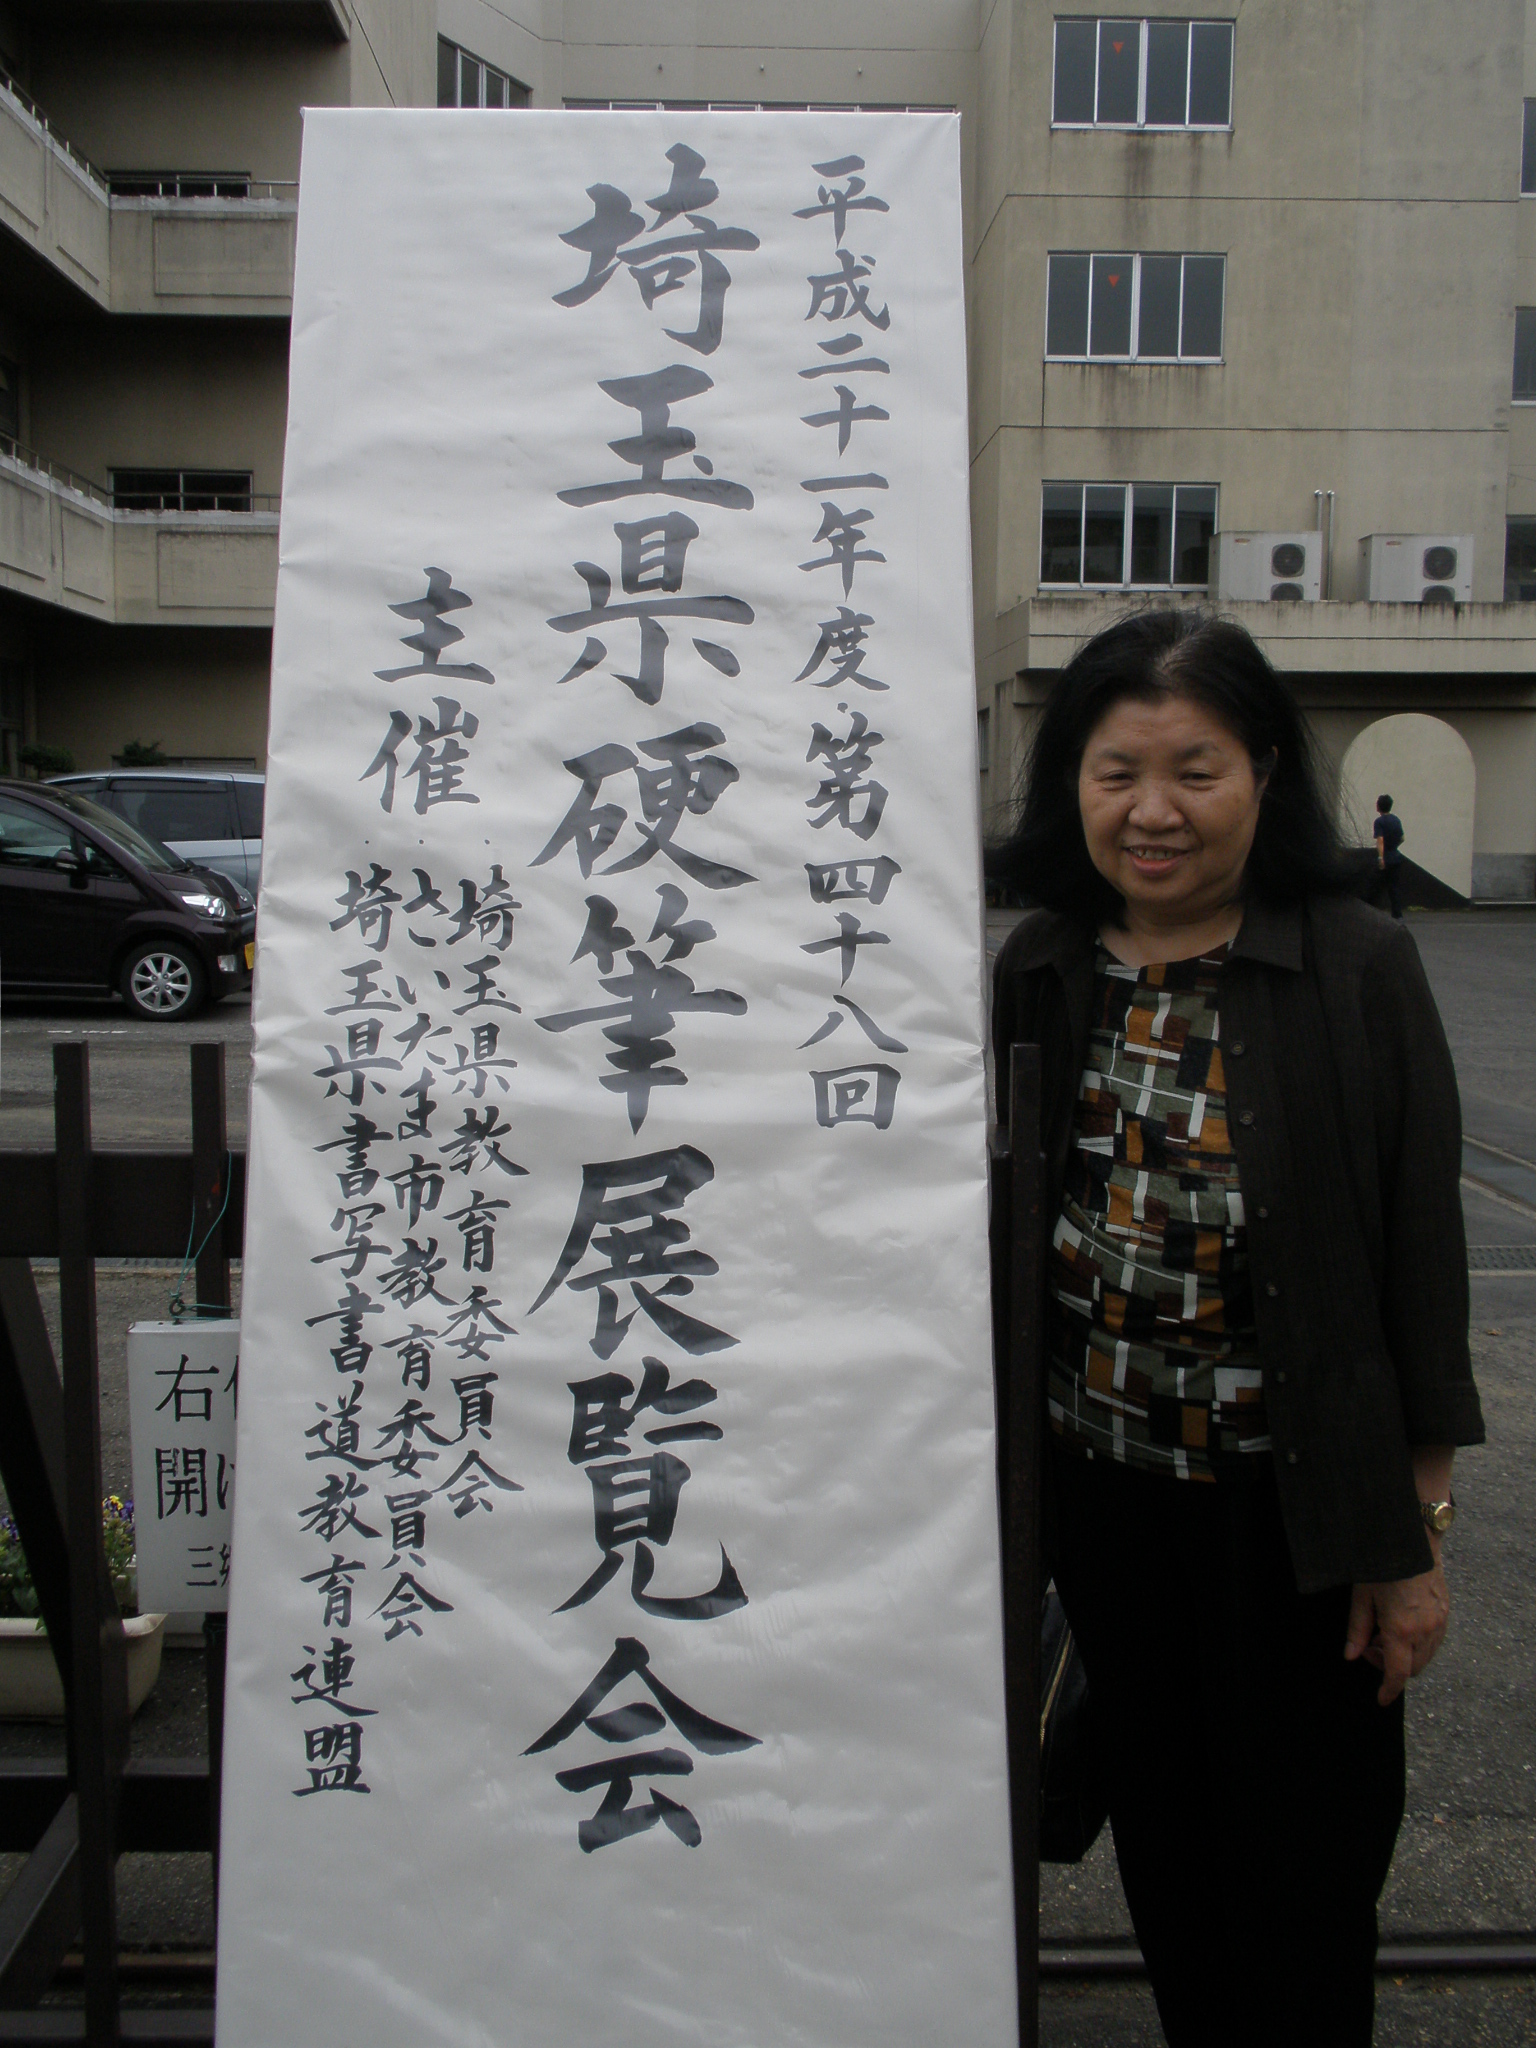 平成二十一年度 第四十八回
埼玉県硬筆展覧会
主催
埼玉県教育委員会
さいたま市教育委員会
埼玉県書写書道教育連盟
右
開
三